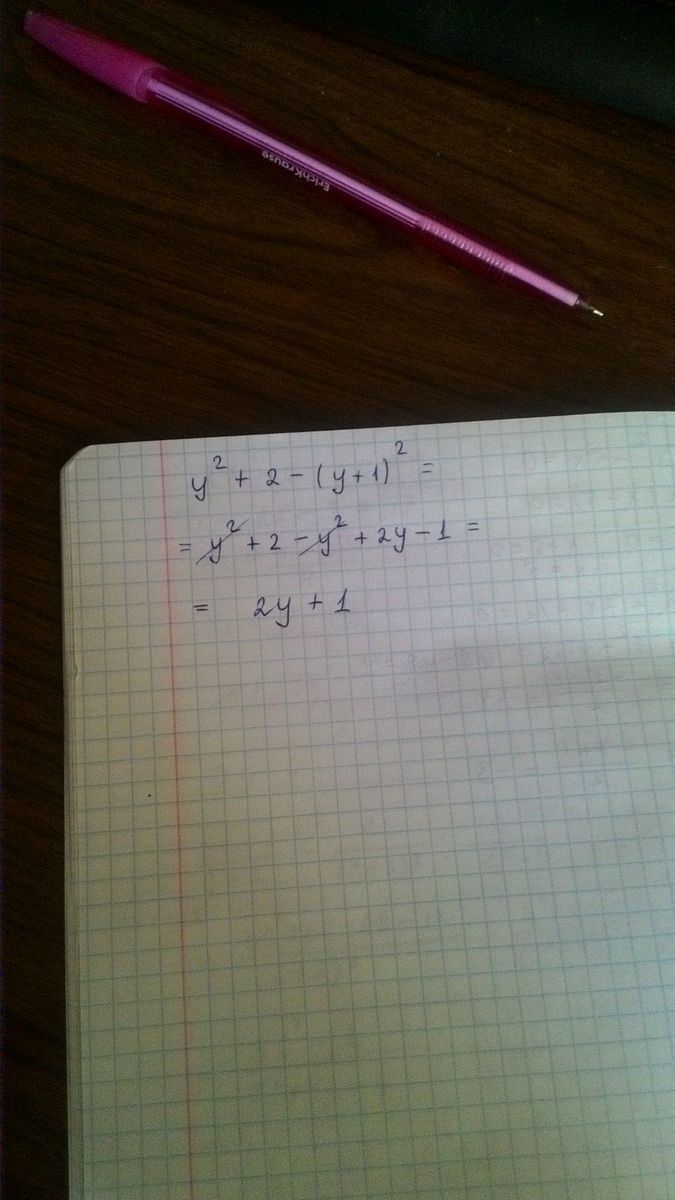 ErichKrause
y² + 2 - (y+1)² =
= y² + 2 - y² + 2y - 1 =
= 2y + 1